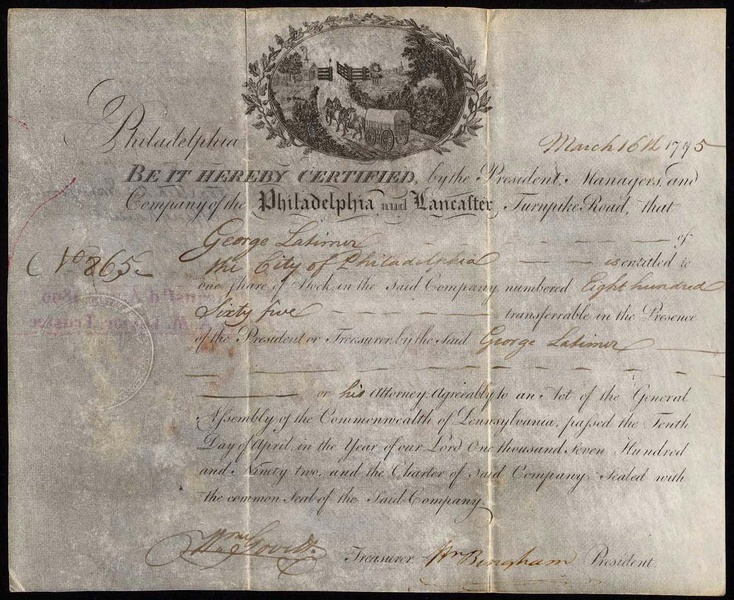 Philadelphia March 16th 1795
BE IT HEREBY CERTIFIED, by the President, Managers, and
Company of the Philadelphia and Lancaster Turnpike Road, that
George Latimer of
No 865
the City of Philadelphia is entitled to
one share of Stock, in the Said Company, numbered Eight hundred
Sixty five transferrable in the Presence
of the President or Treasurer, by the Said George Latimer
or his Attorney. Agreeably to an Act of the General
Assembly, of the Commonwealth of Pennsylvania, passed the Tenth
Day of April, in the Year of our Lord One thousand Seven Hundred
and Ninety two, and the Charter of Said Company, Sealed with
the common Seal of the Said Company
Wm Govett Treasurer Wm Bingham President.